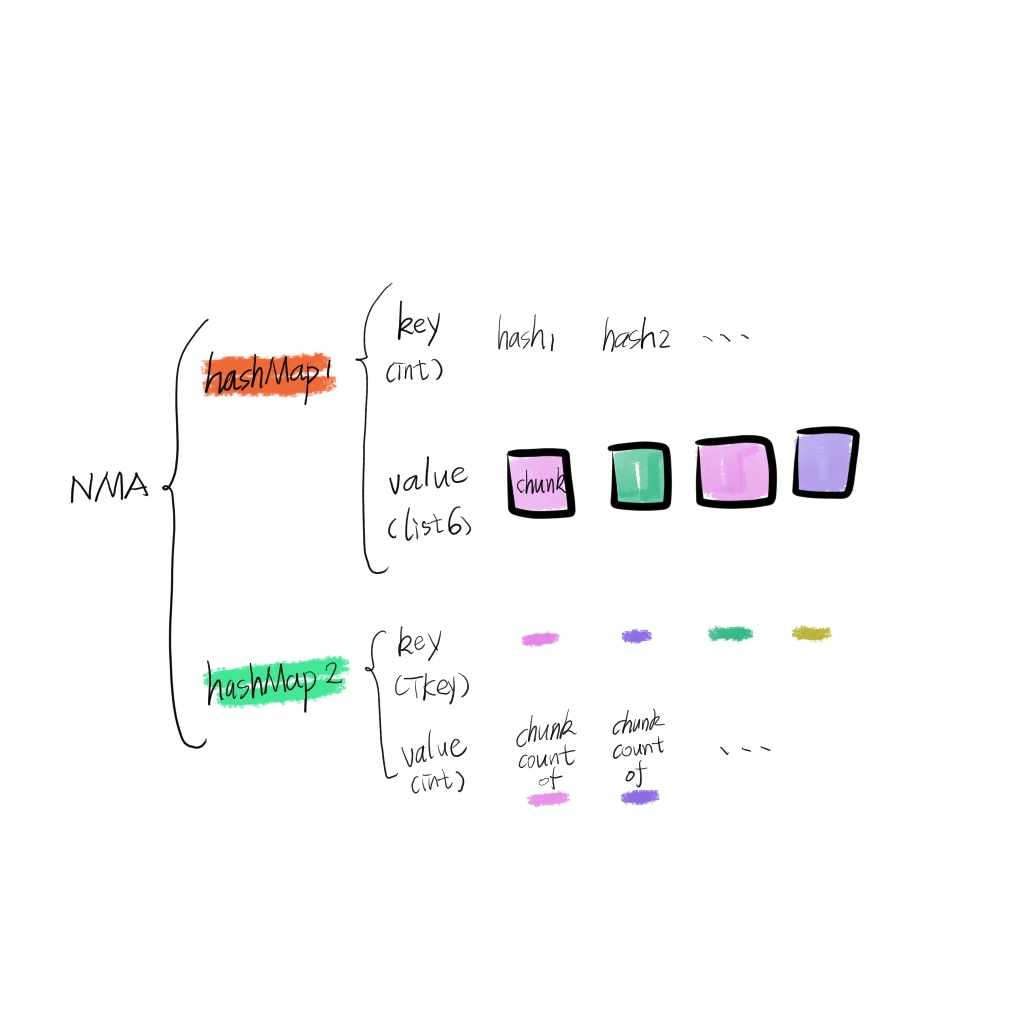 NMA
hashMap1
key
(int)
hash1 hash2 ...
value
(list6)
chunk
hashMap2
key
(Tkey)
value
(int)
chunk
count
of
chunk
count
of
...